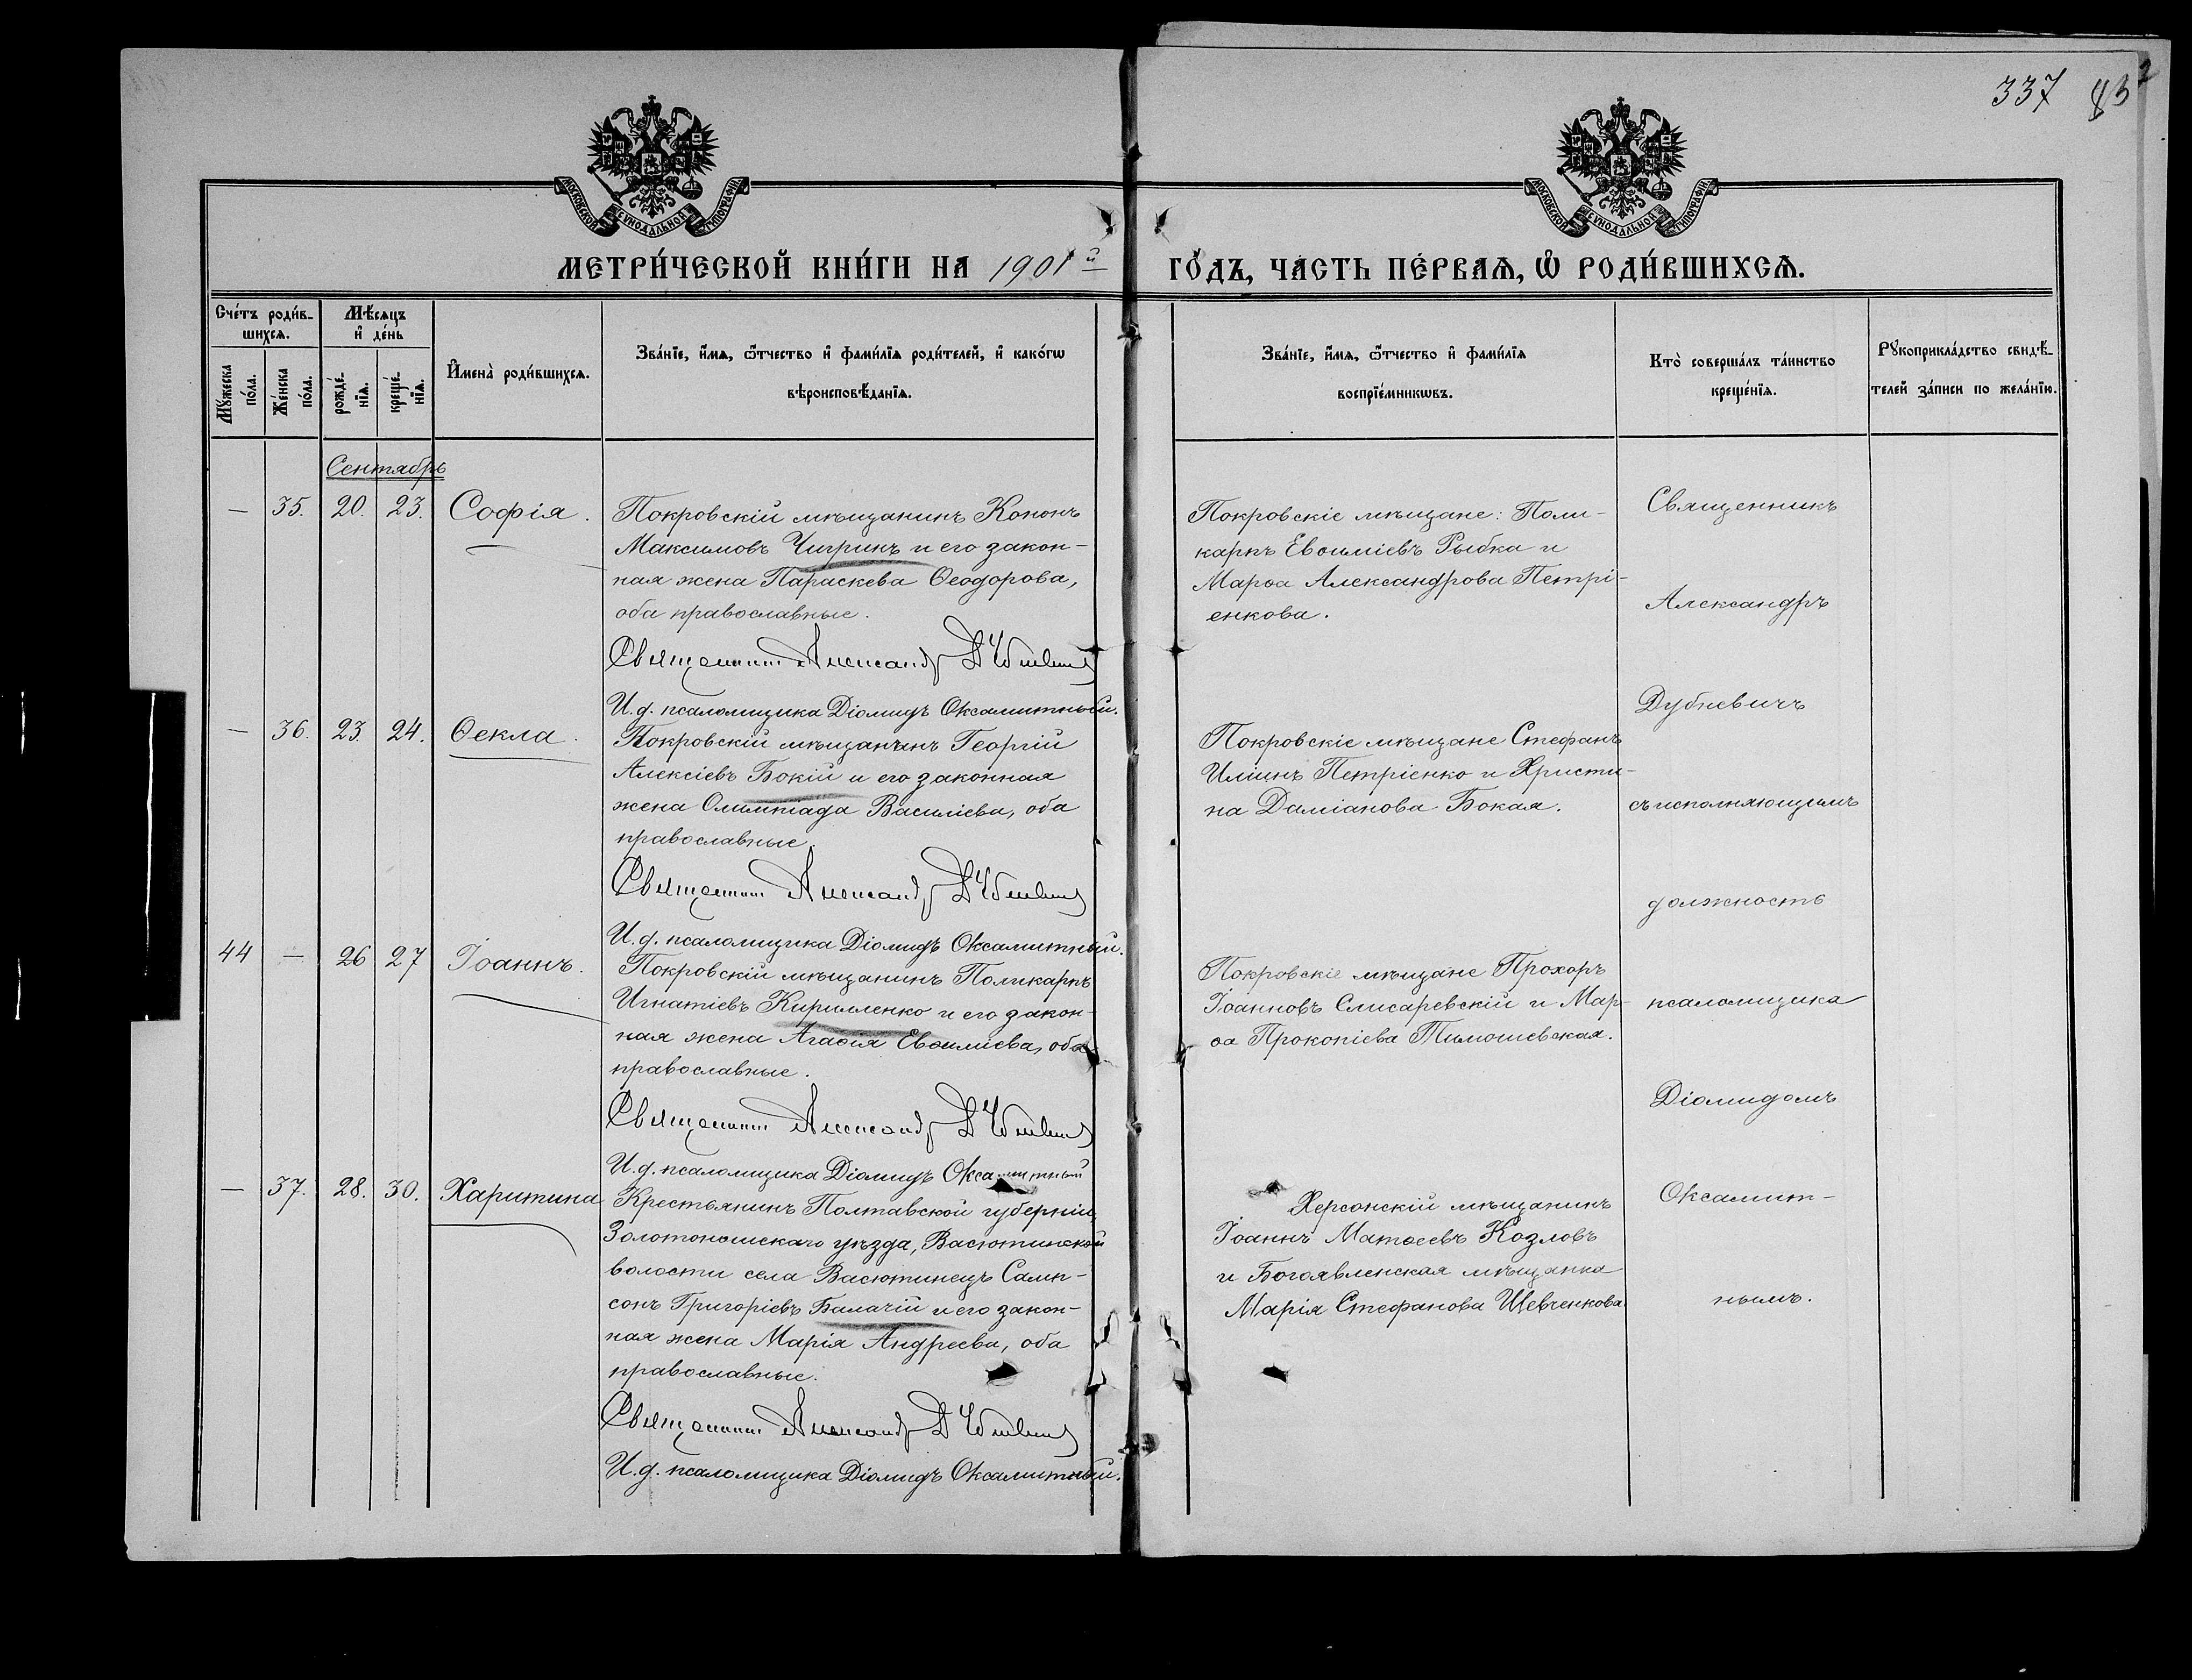 337 83
МОСКОВСКОЙ СѴНОДАЛЬНОЙ ТИПОГРАФІИ
МОСКОВСКОЙ СѴНОДАЛЬНОЙ ТИПОГРАФІИ
МЕТРИ́ЧЕСКОЙ КНИ́ГИ НА 1901й ГО́ДЪ, ЧА́СТЬ ПЕ́РВАѦ, Ѽ РОДИ́ВШИХСѦ.
Сче́тъ роди́в-
шихсѧ.
Мꙋ́жеска по́ла.
Же́нска по́ла.
Мѣ́сѧцъ
и҆ де́нь
рожде́нїѧ.
креще́нїѧ.
И҆мена̀ роди́вшихсѧ.
Зва́нїе, и҆́мѧ, ѻ҆́тчество и҆ фами́лїѧ роди́телей, и҆ како́гѡ
вѣроисповѣ́данїѧ.
Зва́нїе, и҆́мѧ, ѻ҆́тчество и҆ фами́лїѧ
воспрїе́мникѡвъ.
Кто̀ соверша́лъ та́инство
креще́нїѧ.
Рꙋкоприкла́дство свидѣ́-
телей за́писи по жела́нїю.
Сентябрь
— 35. 20. 23. Софія.
Покровскій мѣщанинъ Кононъ
Максимовъ Чигринъ и его закон-
ная жена Параскева Ѳеодорова,
оба православные.
Священникъ Александръ Дубневичъ
И. д. псаломщика Діомидъ Оксамитный.
Покровскіе мѣщане: Поли-
карпъ Евѳиміевъ Рыбка и
Марѳа Александрова Петрі-
енкова.
— 36. 23. 24. Ѳекла.
Покровскій мѣщанинъ Георгій
Алексіевъ Бокій и его законная
жена Олимпіада Василіева, оба
православные.
Священникъ Александръ Дубневичъ
И. д. псаломщика Діомидъ Оксамитный.
Покровскіе мѣщане Стефанъ
Иліинъ Петріенко и Христи-
на Даміанова Бокая.
44 — 26 27 Іоаннъ.
Покровскій мѣщанинъ Поликарпъ
Игнатіевъ Кириленко и его закон-
ная жена Агаѳія Евѳиміева, оба
православные.
Священникъ Александръ Дубневичъ
И. д. псаломщика Діомидъ Оксамитный
Покровскіе мѣщане Прохоръ
Іоанновъ Слисаревскій и Мар-
ѳа Прокопіева Тимошевская.
— 37. 28. 30. Харитина
Крестьянинъ Полтавской губерніи,
Золотоношскаго уѣзда, Васютинской
волости села Васютинецъ Самп-
сонъ Григоріевъ Балачій и его закон-
ная жена Марія Андреева, оба
православные.
Священникъ Александръ Дубневичъ
И. д. псаломщика Діомидъ Оксамитный.
Херсонскій мѣщанинъ
Іоаннъ Матѳеевъ Козловъ
и Богоявленская мѣщанка
Марія Стефанова Шевченкова.
Священникъ
Александръ
Дубневичъ
съ исполняющимъ
должность
псаломщика
Діомидомъ
Оксамит-
нымъ.